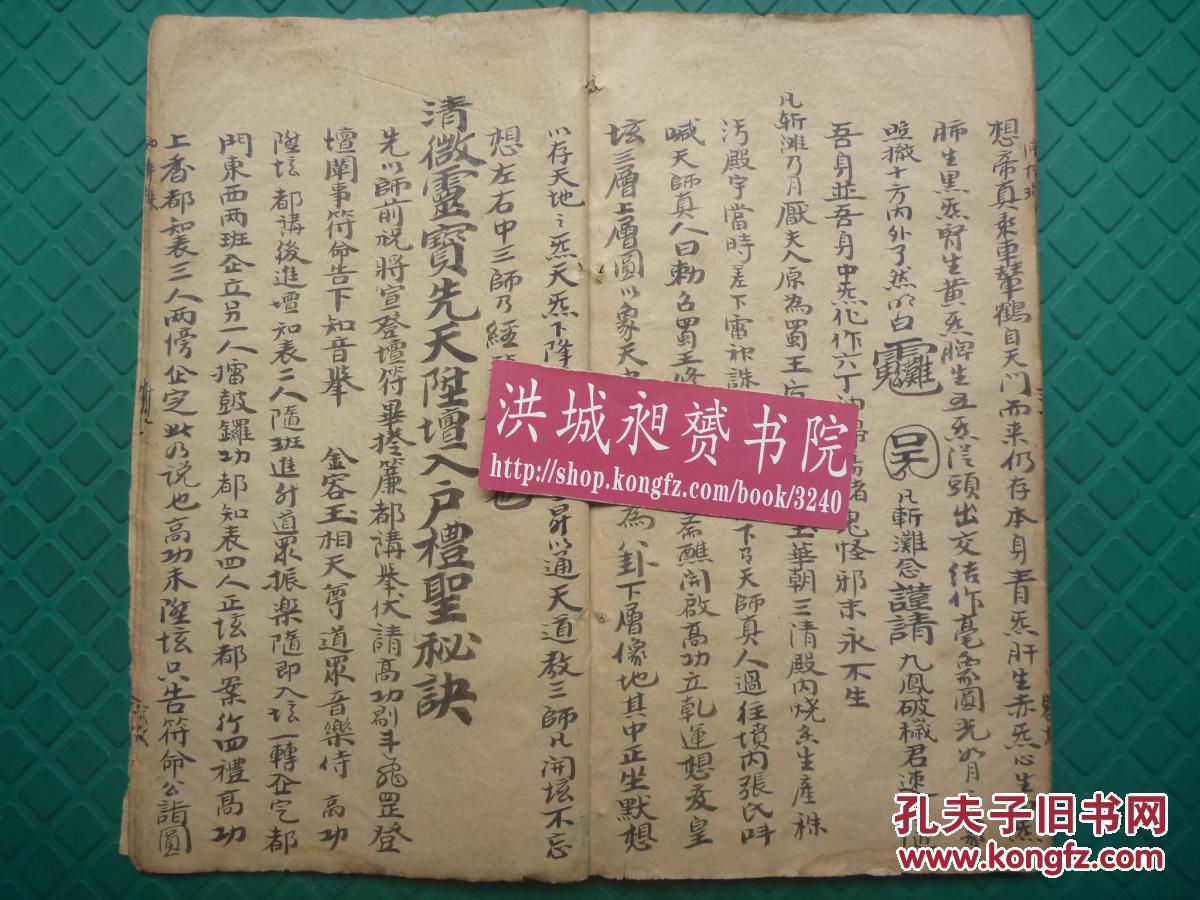 想帝真乘車輦鶴自天門而来仍存本身青炁肝生赤炁心生
肺生黑炁腎生黄炁脾生五炁從頭出交結作毫象圓光如月
照撤十方內外了然明白
凡斬灘念謹請九鳳破穢君速
吾身並吾身中炁化作六丁
鬼怪邪末永不生
凡斬灘乃月厭夫人原為蜀王
玉華朝三清殿內燒香生產秽
汚殿宇當時差下雷神誅
下弓天師真人過往墳內張氏呌
喊天師真人曰勅召蜀王修
斋醮開啟高功立乾運想爰皇
垓三層上層圓以象天
為八卦下層像地其中正坐默想
以存天地之炁天炁下降
昇以通天道教三師凡開垓不忘
想左右中三師乃經
也
清微靈寶先天陞壇入戶禮聖秘訣
先以師前祝將宣登壇符畢捲簾都講舉伏請高功剔斗飛罡登
壇闡事符命告下知音舉 金容玉相天尊道眾音樂侍 高功
陞垓都講後進壇知表二人隨班進升道眾振樂隨即入垓一轉企定都
門東西兩班企立另一人擂鼓鑼功都知表四人正垓都案行四禮高功
上香都知表三人兩傍企定此乃說也高功未陞垓只告符命公請圓
洪城昶赟书院
http://shop.kongfz.com/book/3240
孔夫子旧书网
www.kongfz.com